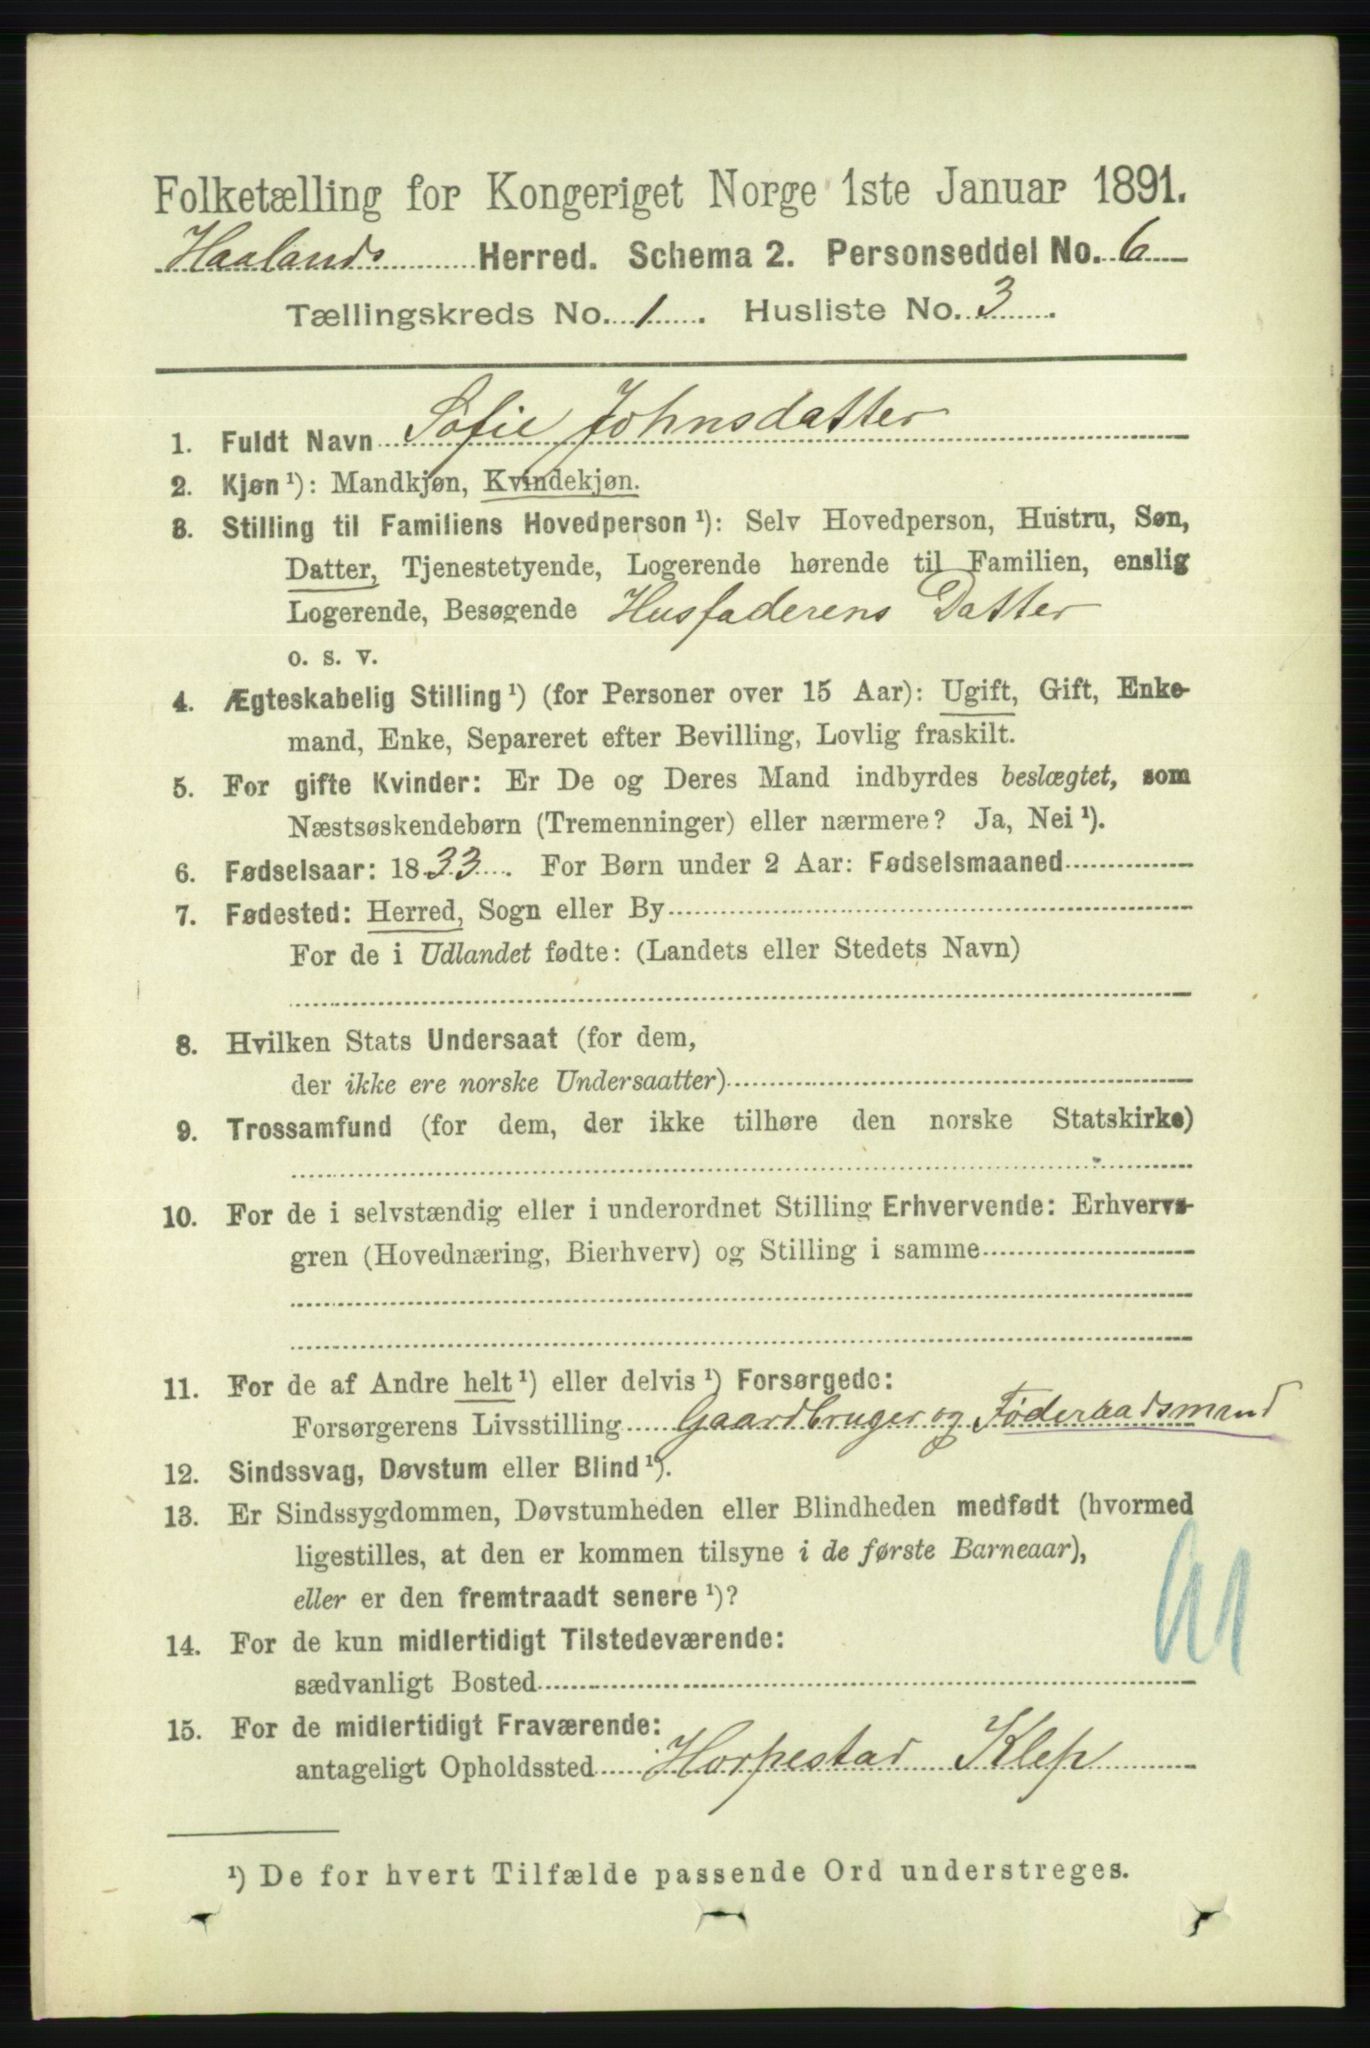 Folketælling for Kongeriget Norge 1ste Januar 1891.
Haalands Herred. Schema 2. Personseddel No. 6
Tællingskreds No. 1. Husliste No. 3.
1. Fuldt Navn Sofie Johnsdatter
2. Kjøn ¹): Mandkjøn, Kvindekjøn.
3. Stilling til Familiens Hovedperson ¹): Selv Hovedperson, Hustru, Søn,
Datter, Tjenestetyende, Logerende hørende til Familien, enslig
Logerende, Besøgende Husfaderens Datter
o. s. v.
4. Ægteskabelig Stilling ¹) (for Personer over 15 Aar): Ugift, Gift, Enke-
mand, Enke, Separeret efter Bevilling, Lovlig fraskilt.
5. For gifte Kvinder: Er De og Deres Mand indbyrdes beslægtet, som
Næstsøskendebørn (Tremenninger) eller nærmere? Ja, Nei ¹).
6. Fødselsaar: 1833. For Børn under 2 Aar: Fødselsmaaned
7. Fødested: Herred, Sogn eller By
For de i Udlandet fødte: (Landets eller Stedets Navn)
8. Hvilken Stats Undersaat (for dem,
der ikke ere norske Undersaatter)
9. Trossamfund (for dem, der ikke tilhøre den norske Statskirke)
10. For de i selvstændig eller i underordnet Stilling Erhvervende: Erhvervs-
gren (Hovednæring, Bierhverv) og Stilling i samme
11. For de af Andre helt ¹) eller delvis ¹) Forsørgede:
Forsørgerens Livsstilling Gaardbruger og Føderaadsmand
12. Sindssvag, Døvstum eller Blind ¹).
13. Er Sindssygdommen, Døvstumheden eller Blindheden medfødt (hvormed
ligestilles, at den er kommen tilsyne i de første Barneaar),
eller er den fremtraadt senere ¹)?
14. For de kun midlertidigt Tilstedeværende:
sædvanligt Bosted
15. For de midlertidigt Fraværende:
antageligt Opholdssted Horpestad Klep
¹) De for hvert Tilfælde passende Ord understreges.